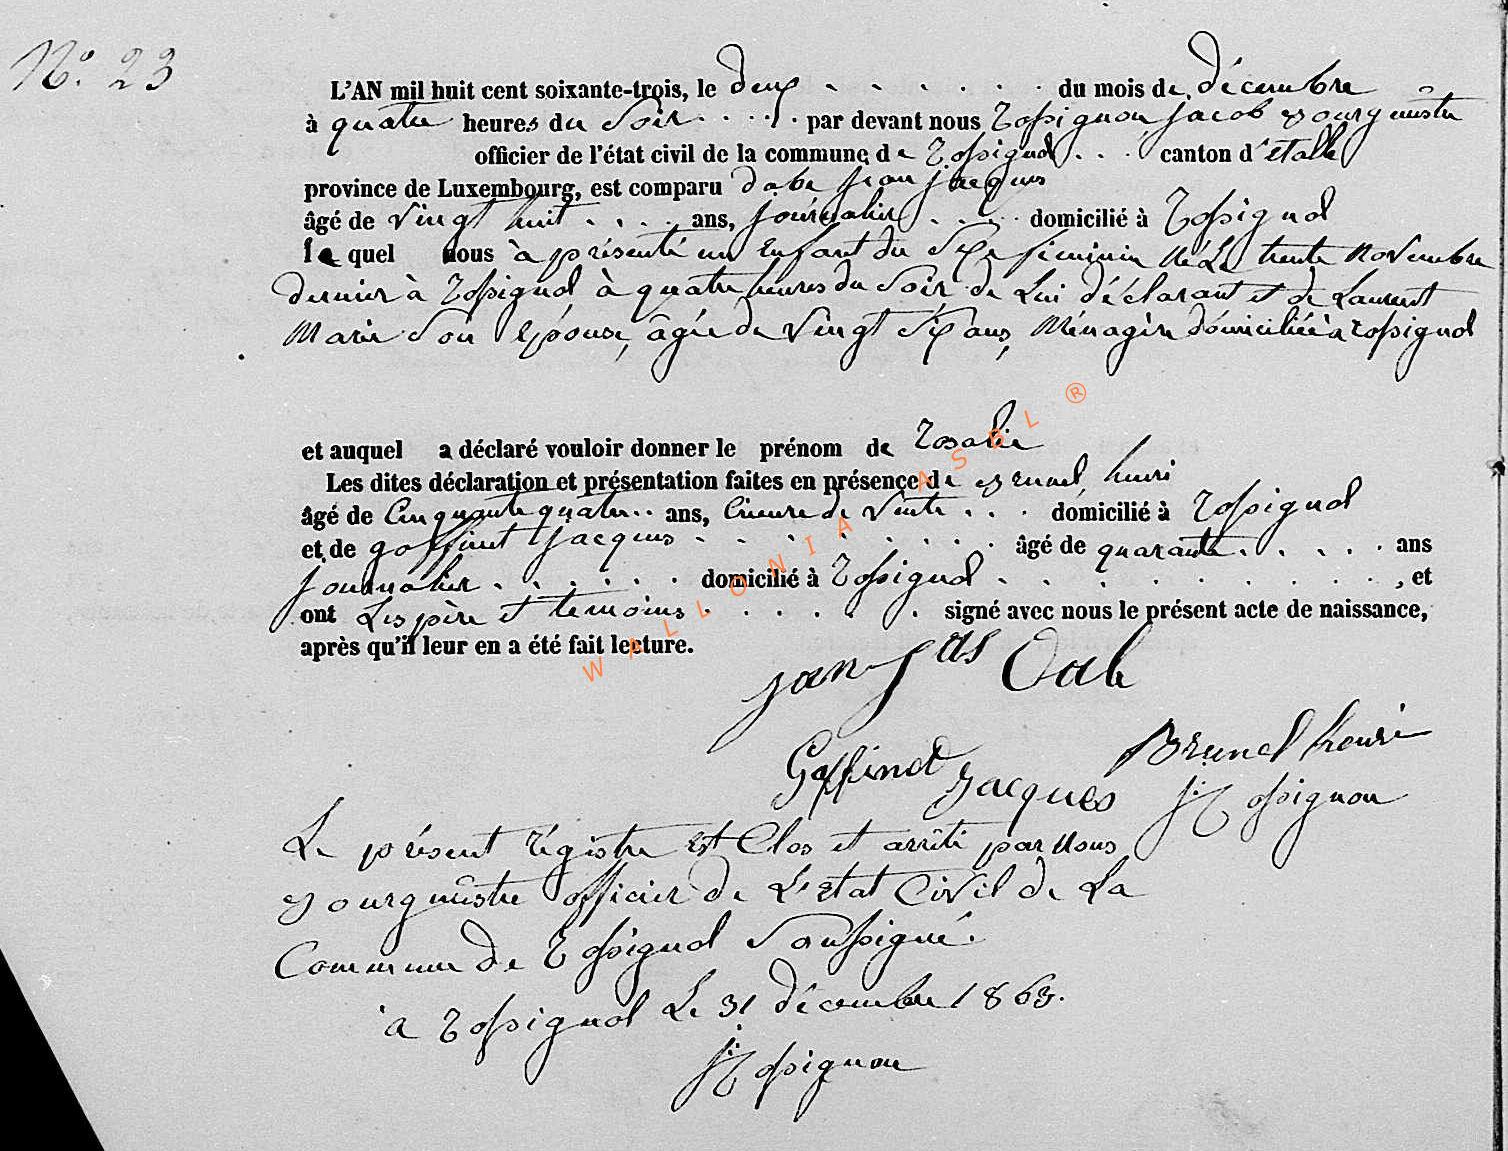 N.º 23
L'AN mil huit cent soixante-trois, le deux . . . . . . du mois de décembre
à quatre heures du Soir . . . . par devant nous Rossignon jacob Bourgmêstre
officier de l'état civil de la commune de Rossignol . . . canton d'étalle
province de Luxembourg, est comparu dabe jean jacques
âgé de vingt huit . . . . ans, journalier . . . . domicilié à Rossignol
le quel nous à présenté un Enfant du Sexe féminin né Le trente novembre
dernier à Rossignol à quatre heures du Soir, de Lui déclarant et de Laurent
Marie Son épouse, âgée de vingt Six ans, Ménagère domiciliée à Rossignol
et auquel a déclaré vouloir donner le prénom de Rosalie
Les dites déclaration et présentation faites en présence de Brunel, henri
âgé de Cinquante quatre . . ans, Cieure de vente . . . domicilié à Rossignol
et de goffinet jacques . . . . . . . . . âgé de quarante . . . . . ans
journalier . . . . . . domicilié à Rossignol . . . . . . . . . , et
ont Les père et temoins . . . . . . signé avec nous le présent acte de naissance,
après qu'il leur en a été fait lecture.
jean jas Dabe
Goffinet jacques
Brunel henri
j: Rossignon
Le présent régistre est Clos et arrêté par nous
Bourgmêstre officier de L'état Civil de La
Commune de Rossignol Soussigné.
à Rossignol Le 31 décembre 1863.
j: Rossignon
WALLONIA ASBL ®